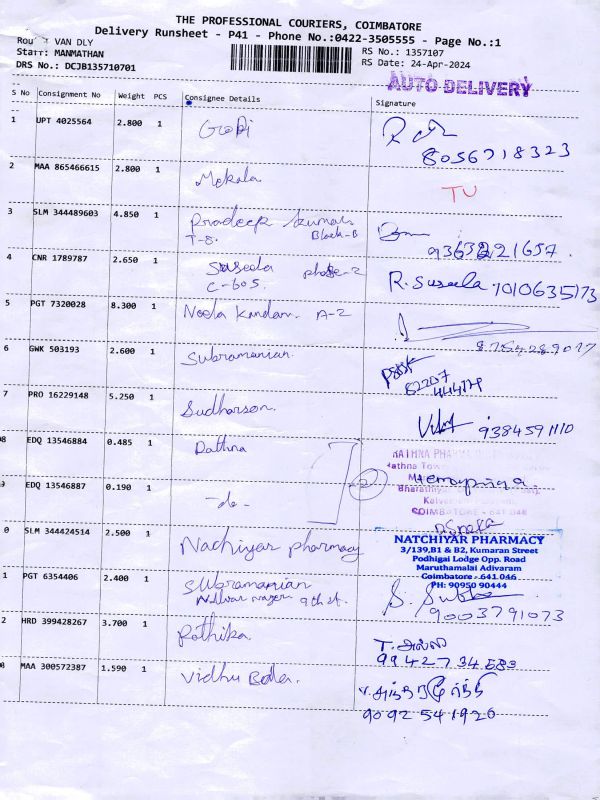 THE PROFESSIONAL COURIERS, COIMBATORE
Delivery Runsheet - P41 - Phone No.:0422-3505555 - Page No.:1
VAN DLY
RS No.: 1357107
Staff: MANMATHAN
RS Date: 24-Apr-2024
DRS No.: DCJB135710701
AUTO DELIVERY
S No Consignment No Weight PCS Consignee Details Signature
1 UPT 4025564 2.800 1 Gopi
8056718323
2 MAA 865466615 2.800 1 Mekala
TU
3 SLM 344489603 4.850 1 Pradeep Kumar
T-8. Block-B
4 CNR 1789787 2.650 1 Suseela phase-2
C-605. R. Suseela
5 PGT 7320028 8.300 1 Neela Kandan. A-2
8754289017
6 GWK 503193 2.600 1 Subramanian.
82207
7 PRO 16229148 5.250 1 Sudharson.
9384591110
EDQ 13546884 0.485 1 Rathna
EDQ 13546887 0.190 1 -do-
COIMBATORE - 641 046
0 SLM 344424514 2.500 1 Nachiyar pharmacy
NATCHIYAR PHARMACY
3/139,B1 & B2, Kumaran Street
Podhigai Lodge Opp. Road
Maruthamalai Adivaram
Coimbatore - 641 046
PH: 90950 90444
1 PGT 6354406 2.400 1 Subramanian
9th st.
9003791073
2 HRD 399428267 3.700 1 Rathika.
99427 34583
MAA 300572387 1.590 1 Vidhu Bala.
9092541926